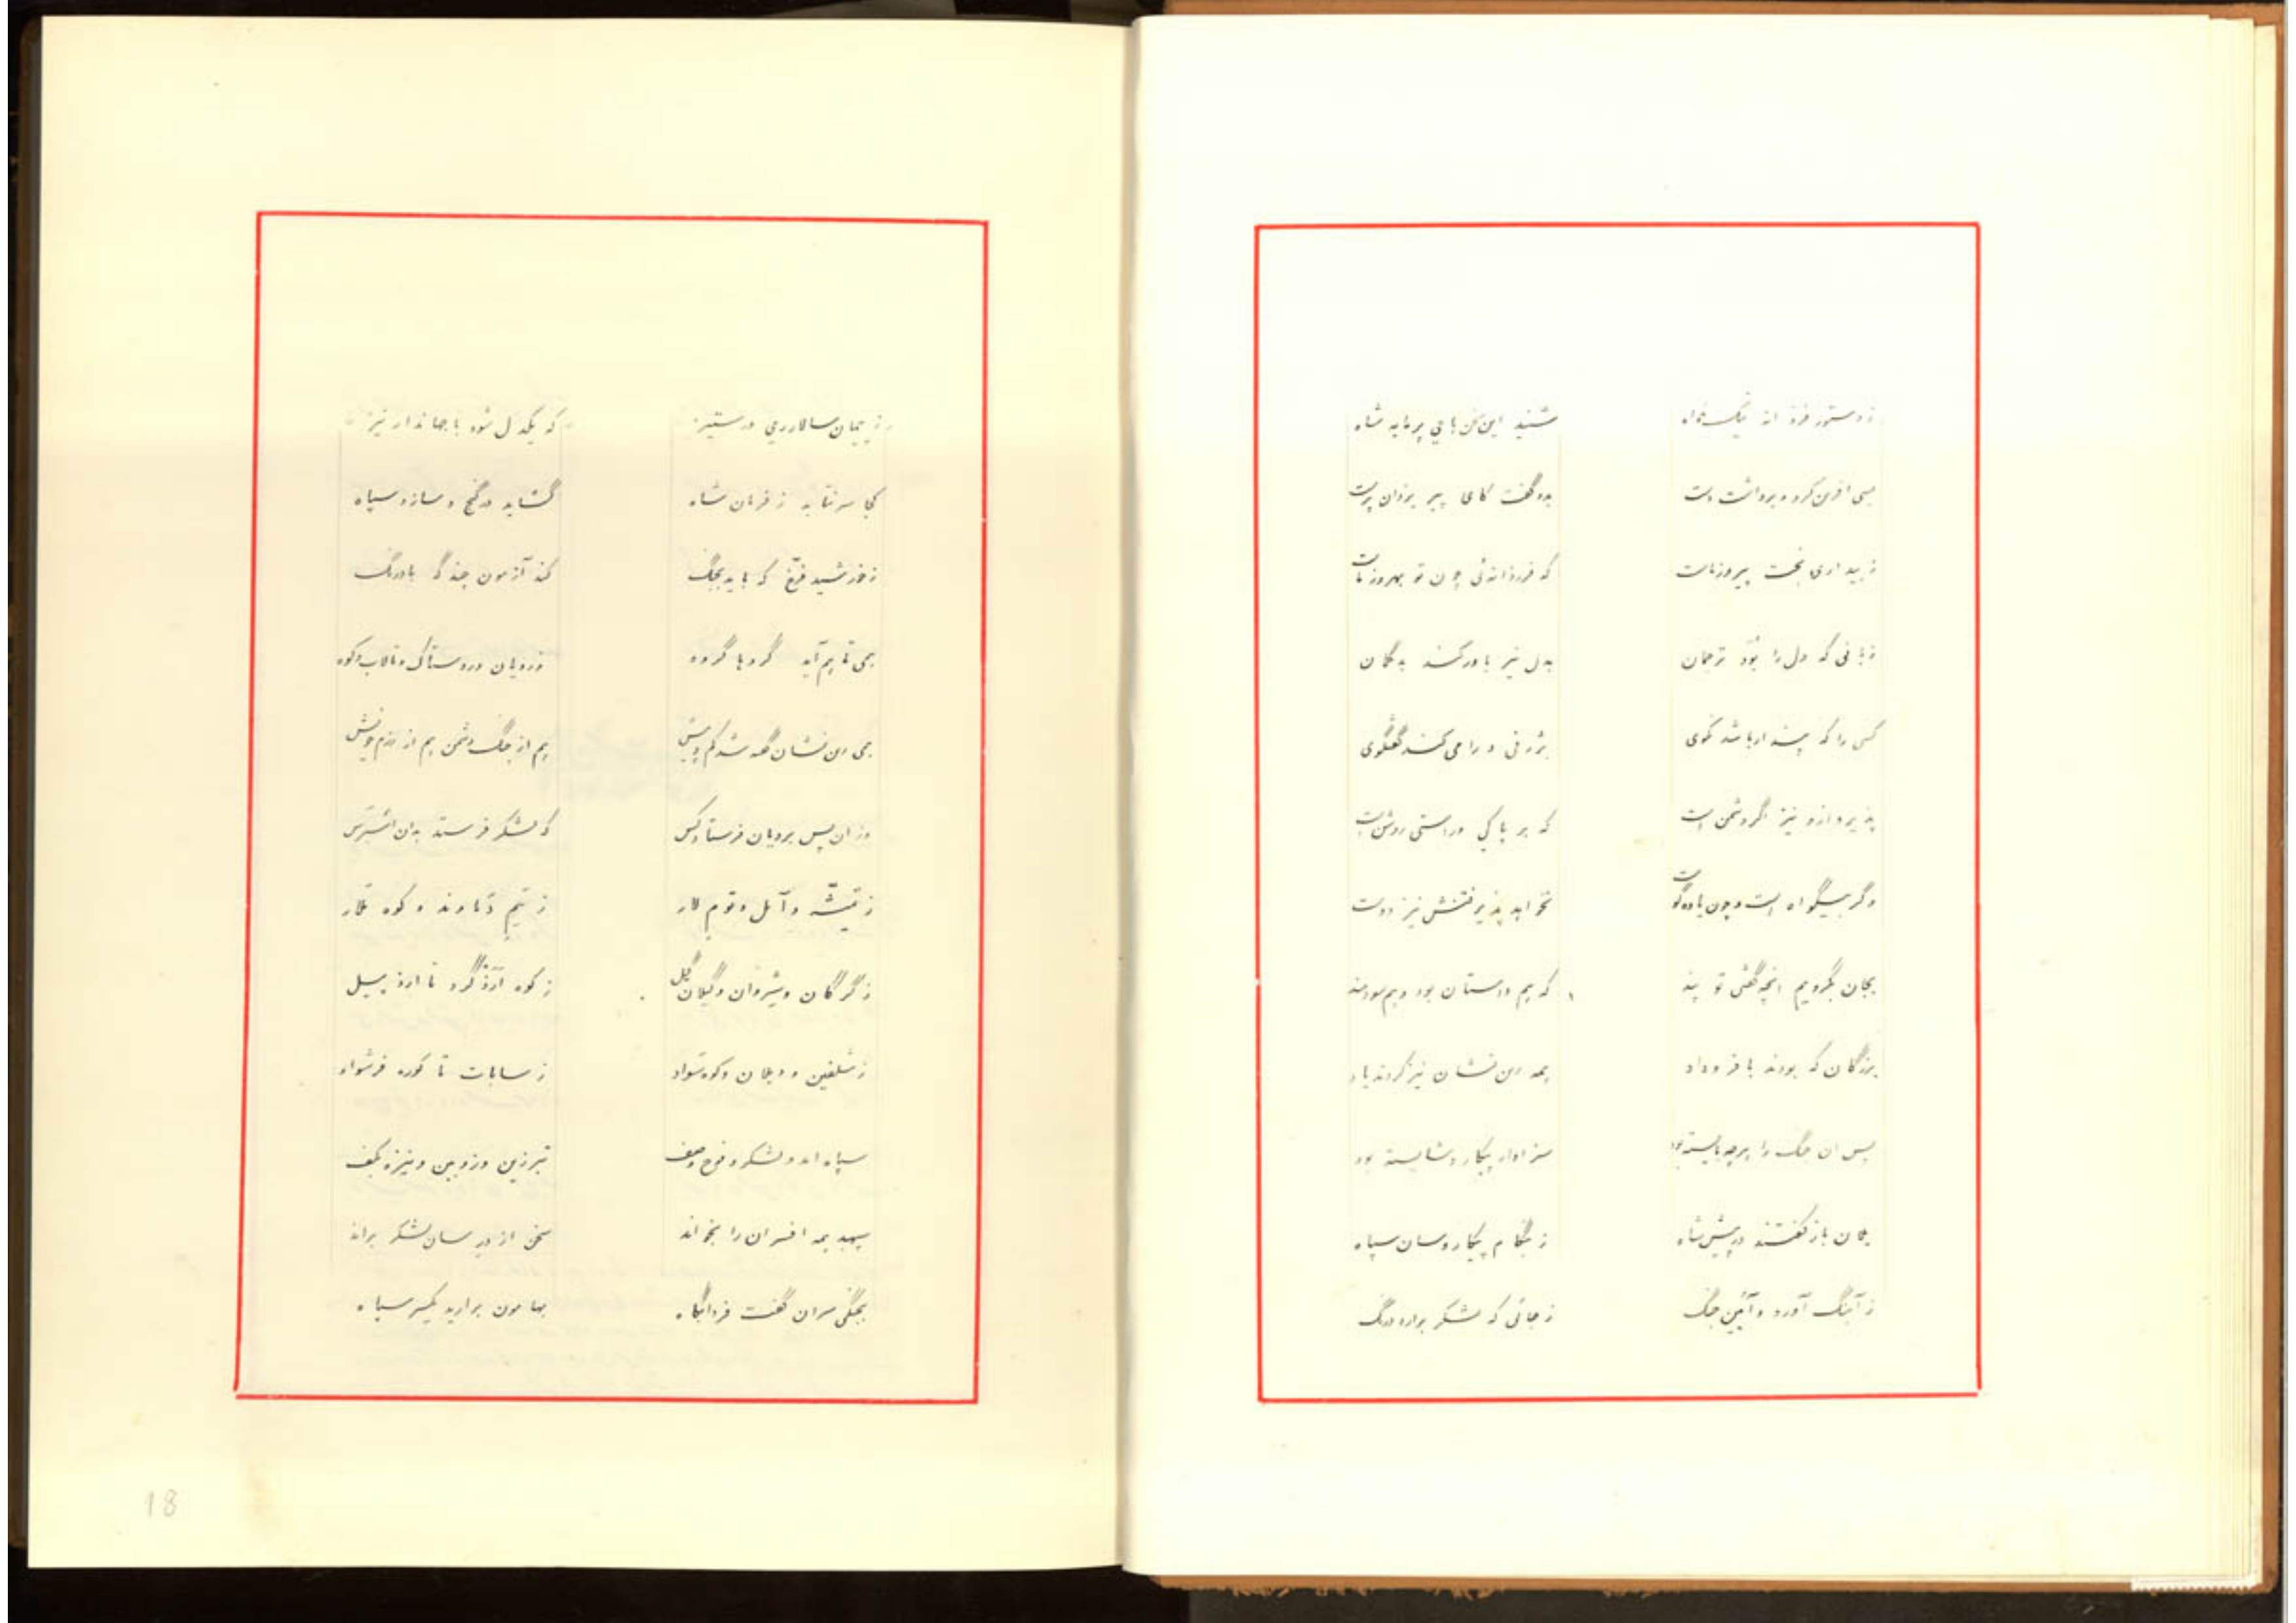 ز دستور فرزانه نیک خواه
شنید این سخن های پرمایه شاه
بسی آفرین کرد و برداشت دست
بدو گفت کای پیر یزدان پرست
ز بیداری بخت پیروز ماست
که فرزانه‌ئی چون تو بهروز ماست
زبانی که دل را بود ترجمان
بدل نیز باور کند بدگمان
کسی را که پندار باشد نکوی
بژرفی ورا می کند گفتگوی
پذیرد ازو نیز اگر دشمن است
که بر پاکی و راستی روشن است
وگر بیگواه است و چون یاده گوست
نخواهد پذیرفتنش نیز دوست
بجان بگرویم انچه گفتی تو پند
که هم داستان بود و هم سودمند
بزرگان که بودند با فر و داد
همه این نشان نیز کردند یاد
پس ان جنگ را هرچه بایسته بود
سزاوار پیکار و شایسته بود
یلان باز گفتند در پیش شاه
ز هنگام پیکار و سان سپاه
ز آهنگ آورد و آئین جنگ
ز جائی که لشکر برارد درنگ
ز پیمان سالار ری در ستیز
که یکدل شود با جهاندار نیز
کجا سر نتابد ز فرمان شاه
گشاید در گنج و سازد سپاه
ز خورشید فرخ که باید بجنگ
کند آزمون چند گه با درنگ
همی تا بهم آید گروها گروه
ز رویان و روستاک و تالاب و کوه
همی این نشان گفته شد کم و بیش
هم از جنگ دشمن هم از رزم خویش
وزان پس برویان فرستاد کس
که لشکر فرستد بدان
ز تمیشه و آمل و توم لار
ز تیم دماوند و کوه قلار
ز گرگان و شیروان و گیلان گیل
ز کوه تا اردبیل
ز شلفین و دیلان و کوه سواد
ز سابات تا کوره فرشواد
سپاه اندو لشکر و فوج و صف
تبرزین و زوبین و نیزه بکف
سپهبد همه افسران را بخواند
سخن از در سان لشکر براند
بجنگی سران گفت فردا بگاه
بهامون برارید یکسر سپاه
18